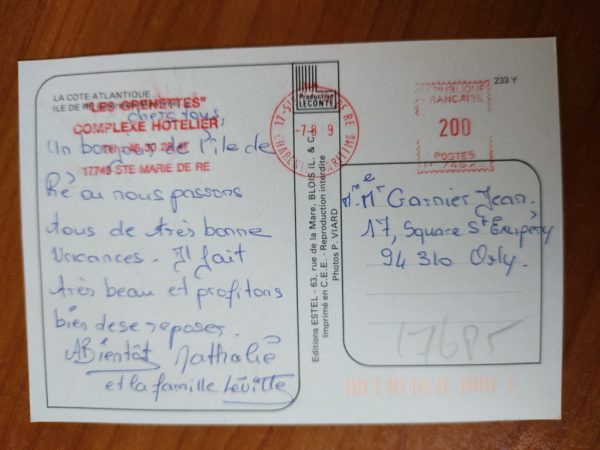 LA COTE ATLANTIQUE
ILE DE RE
"LES GRENETTES"
COMPLEXE HOTELIER
17740 STE MARIE DE RE
chers tous,
Un bonjour de l'île de
Ré où nous passons
tous de très bonne
vacances. Il fait
très beau et profitons
bien de se reposer.
A Bientôt Nathalie
et la famille
Production
LECONTE
Editions ESTEL - 63, rue de la Mare, BLOIS (L. & C.)
Imprimé en C.E.E. - Reproduction interdite
Photos P. VIARD
-7-8 9
CHARENTE MARITIME
233 Y
REPUBLIQUE
FRANCAISE
200
POSTES
Mme Mr Garnier Jean
17, Square St Exupéry
94 310 Orly.
17685